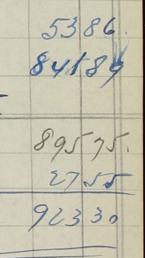 5386.
84189
89575.
2755
92330